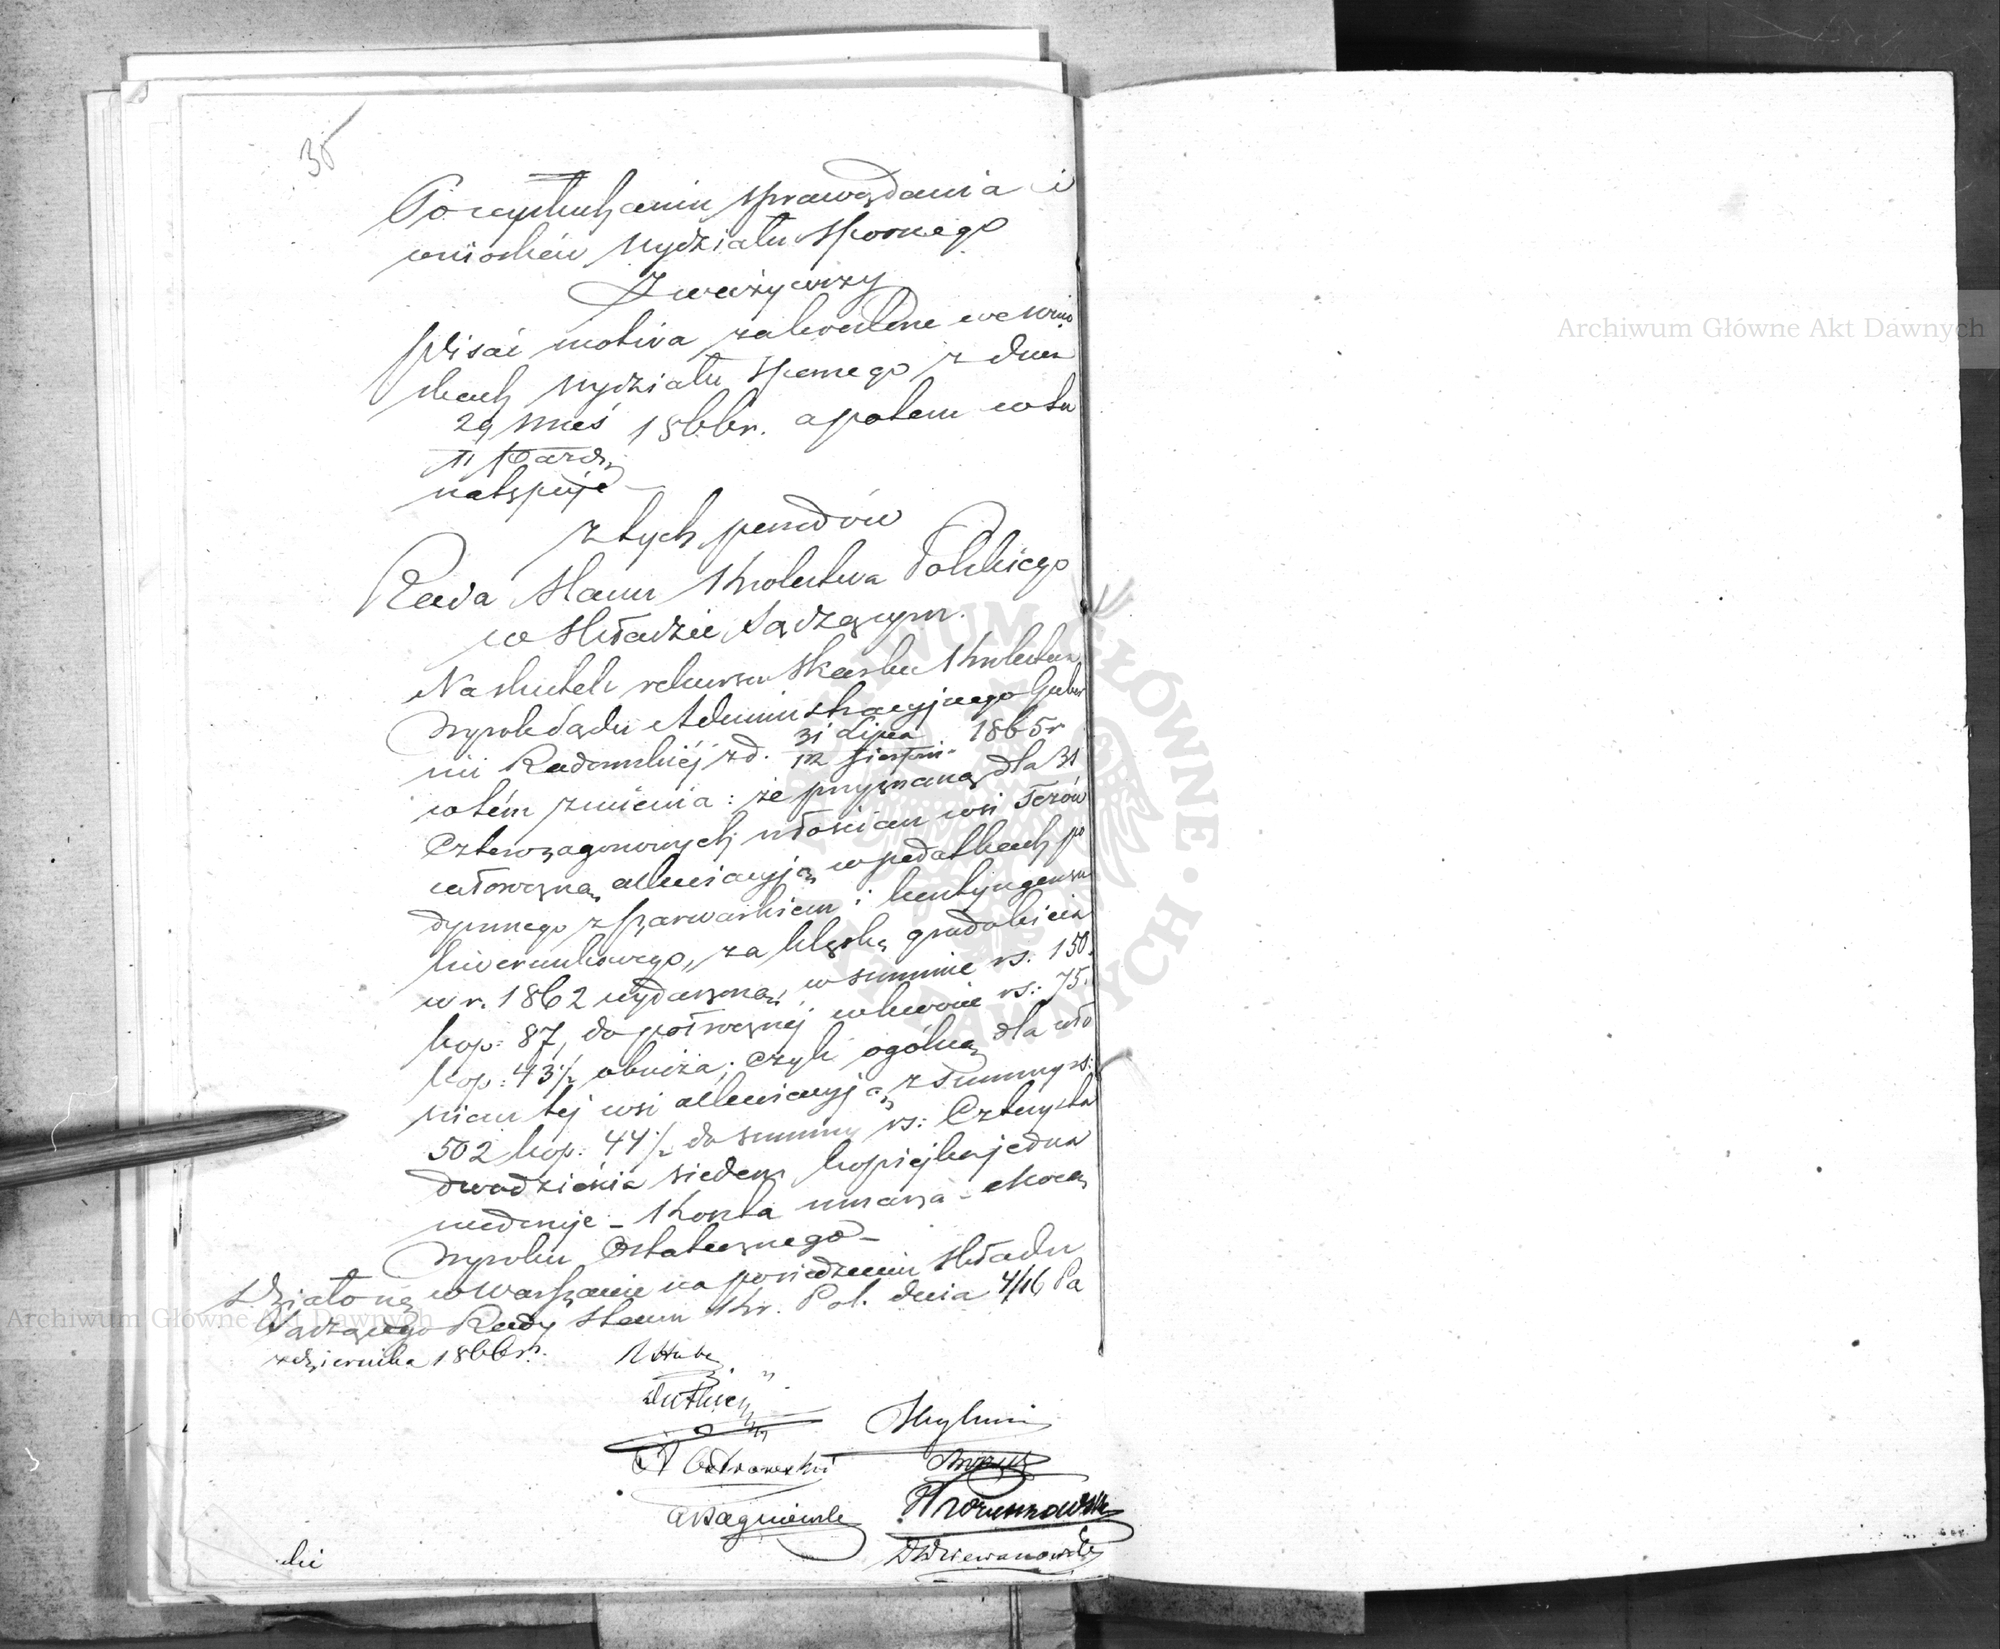 35
Po wysłuchaniu sprawozdania i
wniosków Wydziału Spornego
Zważywszy
/Wisać motiva zakreślone we wnio
skach Wydziału Spornego z dnia
29 Wrześ 1866r. a potem co tu
11 Paźdz.
natspuje –
z tych powodów
Rada Stanu Królestwa Polskiego
w składzie Sądzącym.
Na skutek rekursu Skarbu Królestwa
Wyrok Sądu Administracyjnego Guber
nii Radomskiéj z d. 31 Lipca 1865r
12 Sierpnia
w tém zmienia: że przyznaną dla 31
Czterozagonowych włościan wsi
całoroczną allewiacyją w podatkach po
dymnego z szarwarkiem i kontyngensu
liwerunkowego, za klęskę gradobicia
w r. 1862 wydarzoną, w summie rs. 150.
kop: 87, do półrocznéj w kwocie rs: 75.
kop: 43½ obniża; czyli ogólną dla wło
ścian tej wsi allewiacyją z summy rs:
502 kop: 44½ do summy rs: Czterysta
dwadzieścia siedem kopiejka jedna
redukuje – Koszta umarza – Mocą
Wyroku Ostatecznego –
Działo się w Warszawie na posiedzeniu Składu
Sądzącego Rady Stanu Kr. Pol. dnia 4/16 Pa
ździernika 1866r.
R Hube
A Ostrowski
Archiwum Główne Akt Dawnych
Archiwum Główne Akt Dawnych
ARCHIWUM GŁÓWNE AKT DAWNYCH